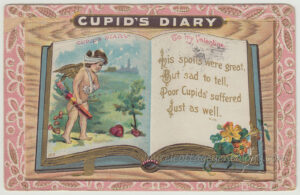 CUPID'S DIARY
CUPID'S DIARY
To my Valentine
His spoils were great,
But sad to tell,
Poor Cupids' suffered
Just as well.